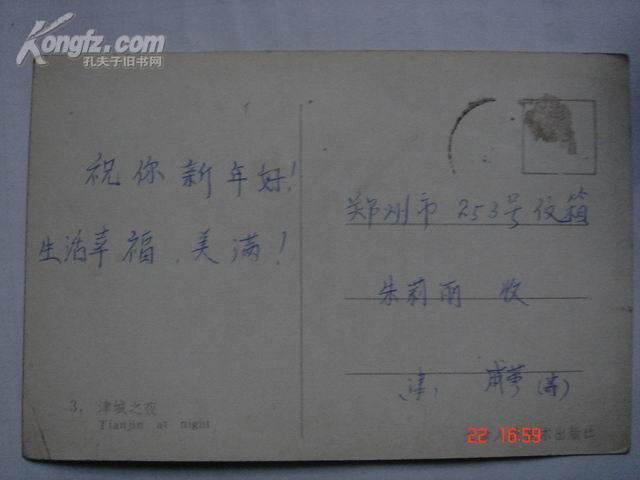 Kongfz.com
孔夫子旧书网
祝你新年好!
生活幸福、美满!
郑州市253号信箱
朱莉丽 收
津,
3. 津城之夜
Tianjin at night
术出版社
22 16:59